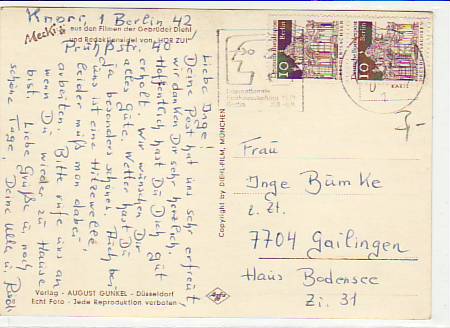 Knorr, 1 Berlin 42,
Prühßstr. 40
Mecki aus den Filmen der Gebrüder Diehl
und Redaktionsigel von „HÖR ZU!"
Liebe Inge!
Deine Post hat uns sehr erfreut,
wir danken Dir sehr herzlich.
Hoffentlich hast Du Dich gut
erholt. Wir wünschen Dir
alles Gute. Wetter hast Du
ja besonders schönes. Auch bei
uns ist eine Hitzewelle,
leider muß man dabei
arbeiten. Bitte rufe uns an
wenn Du wieder zu Hause
bist. Liebe Grüße u. noch
schöne Tage, Deine Ulla u.
Verlag - AUGUST GUNKEL - Düsseldorf
Echt Foto - Jede Reproduktion verboten
Agfa
Copyright by DIEHL-FILM, MÜNCHEN
Deutsche Bundespost Berlin
10
Deutsche Bundespost Berlin
10
Internationale
Berlin
KARIZ
3,-
Frau
Inge Bümke
z. Zt.
7704 Gailingen
Haus Bodensee
Zi. 31